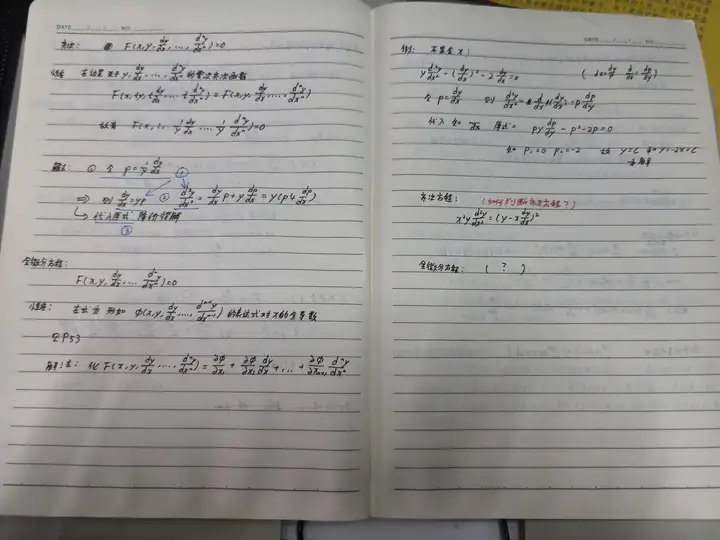 DATE NO.
方法: F(x,y,dy/dx,...,dⁿy/dxⁿ)=0
性质 左边是关于 y, dy/dx, ..., dⁿy/dxⁿ 的零次齐次函数
F(x,ty,t dy/dx ... t dⁿy/dxⁿ) = F(x,y,dy/dx,...,dⁿy/dxⁿ)
F(x,1,1/y dy/dx ... 1/y dⁿy/dxⁿ)=0
解法: ① 令 p=1/y dy/dx ①
⇒ 则 dy/dx=yp ② d²y/dx² = dy/dx p+y dp/dx = y(p²+dp/dx)
代入原式 降价得解
③
全微分方程:
F(x,y,dy/dx,...dⁿy/dxⁿ)=0
性质: 左式为 形如 Φ(x,y,dy/dx,...,dⁿ⁻¹y/dxⁿ⁻¹) 的表达式对x的全导数
见P53
解法: 化 F(x,y,dy/dx,...,dⁿy/dxⁿ) = ∂Φ/∂x₁ + ∂Φ/∂x₂ dy/dx + ... + ∂Φ/∂xₙ₊₁ dⁿy/dxⁿ
DATE NO.
例: 不显含 x:
y d²y/dx² - (dy/dx)² - 2 dy/dx = 0
令 p=dy/dx 则 d²y/dx² = d/dx(dy/dx) = p dp/dy
代入 原式= py dp/dy - p² - 2p = 0
故 y=C
齐次方程: (如何判断齐次方程?)
x²y d²y/dx² = (y-x dy/dx)²
全微分方程: ( ? )